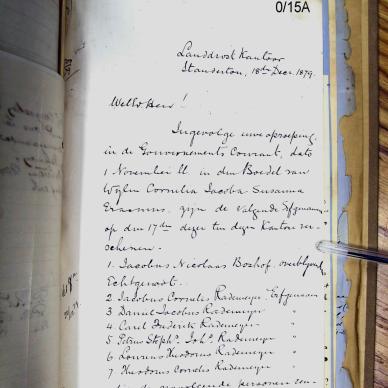 0/15A
Landdrost Kantoor
Standerton, 18den Decr. 1879.
WelEd Heer!
Ingevolge uwe oproeping
in de Gouvernements Courant, dato
1 November ll. in den Boedel van
Wylen Cornelia Jacoba Susanna
Erasmus, zyn de Volgende Erfgenamen
op den 17den dezer ten dezen Kantore ver-
schenen.
1. Jacobus Nicolaas Boshof, overblyvende
Echtgenoot.
2 Jacobus Cornelis Rademeyer Erfgenaam
3 Daniel Jacobus Rademeyer "
4 Carel Frederik Rademeyer "
5 Petrus Stephs. Johs. Rademeyer "
6 Lourens Theodorus Rademeyer "
7 Theodorus Cornelis Rademeyer "
personen